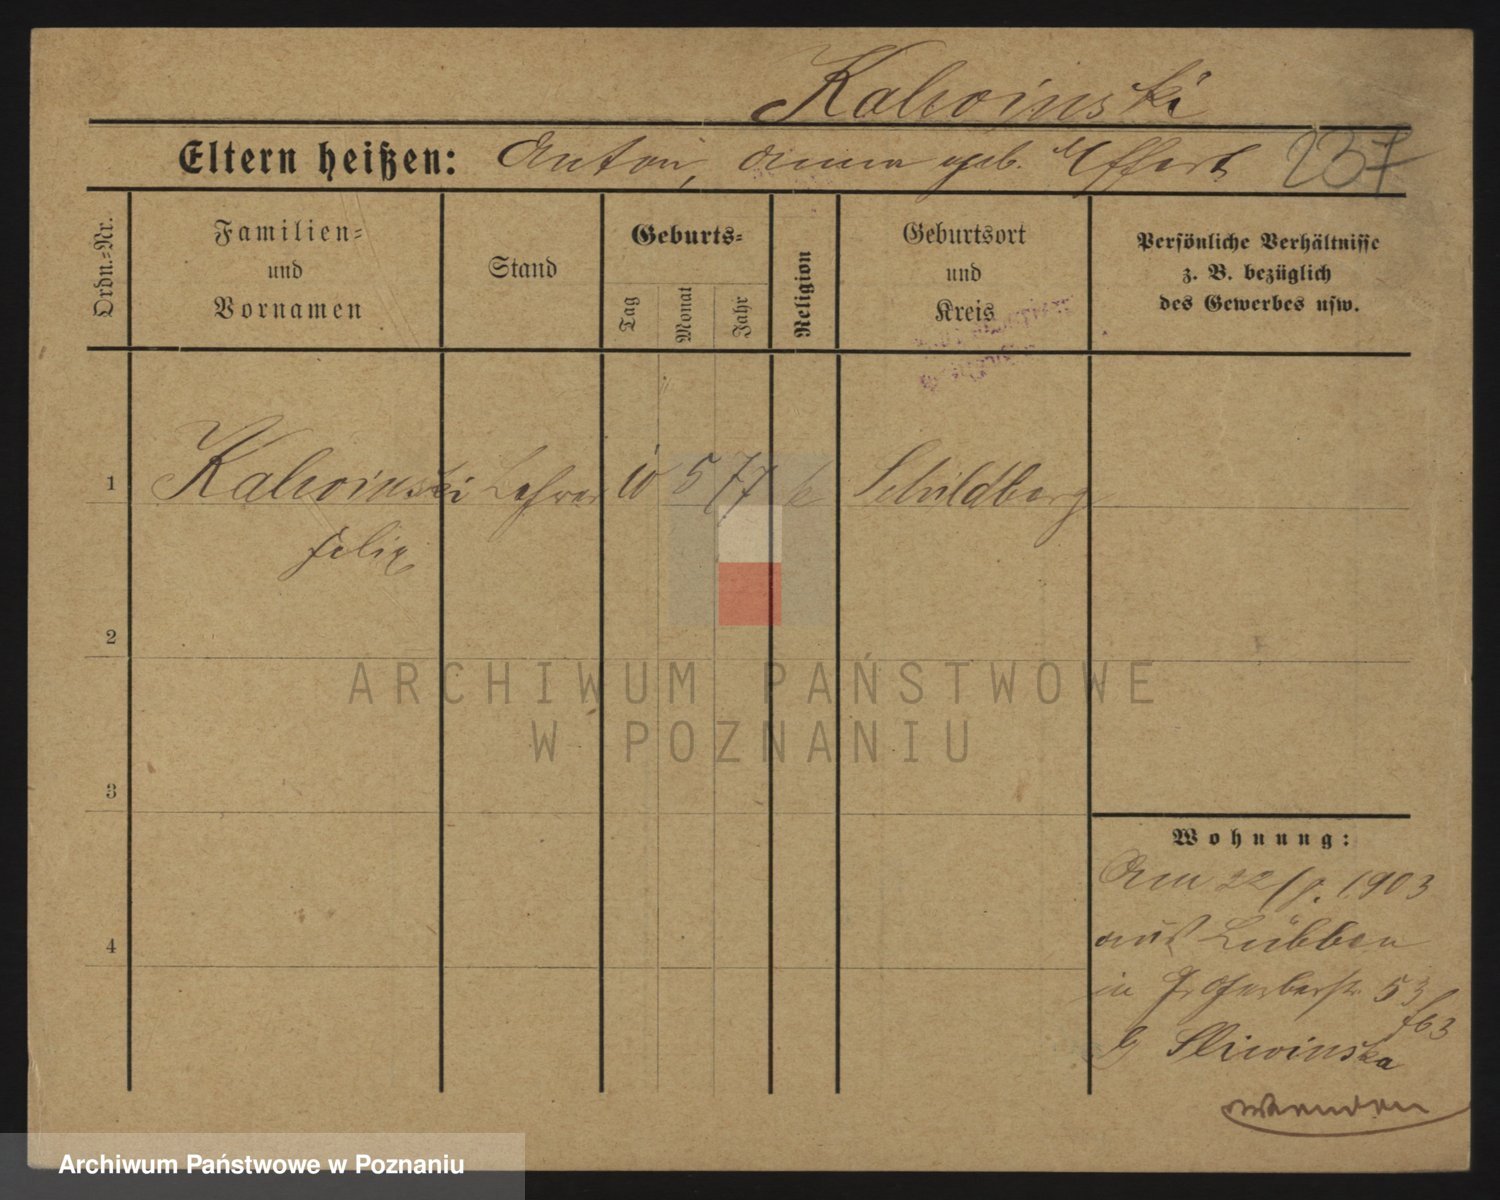 Kalwinski
Eltern heißen: Anton, Anna geb. Effert 237
Ordn.-Nr.
Familien-
und
Vornamen
Stand
Geburts-
Tag
Monat
Jahr
Religion
Geburtsort
und
Kreis
Persönliche Verhältnisse
z. B. bezüglich
des Gewerbes usw.
1 Lehrer 10 5 77 k Schildberg
Felix
2
3
4
Wohnung:
Am 22/ 1903
aus Lübben
in Gr. Gerberstr. 53
b/ Sliwinska
wenden
ARCHIWUM PAŃSTWOWE
W POZNANIU
Archiwum Państwowe w Poznaniu